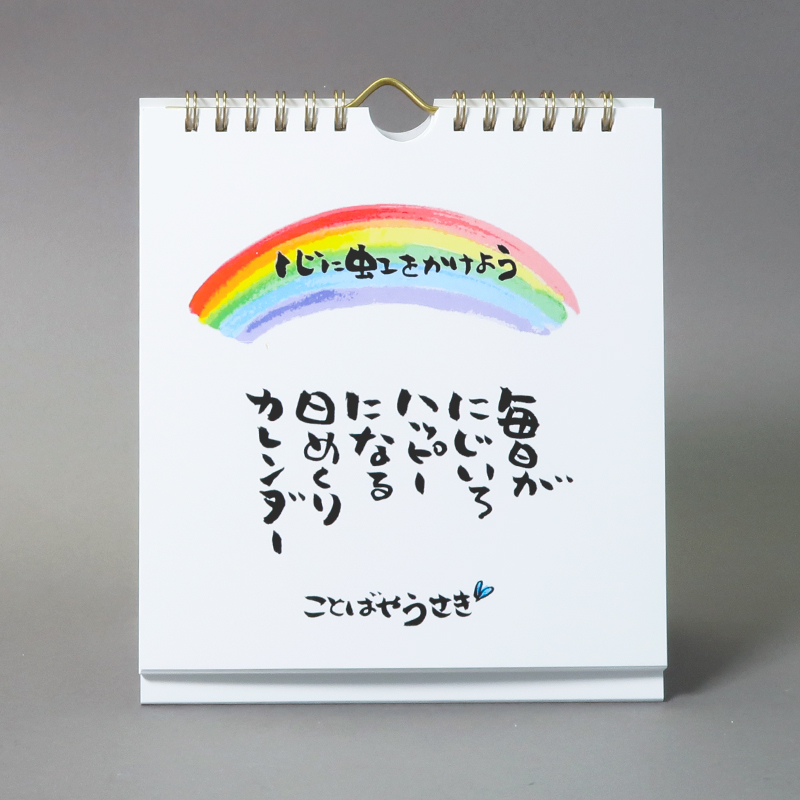 心に虹をかけよう
毎日が
にじいろ
ハッピー
になる
日めくり
カレンダー
ことばやうさき